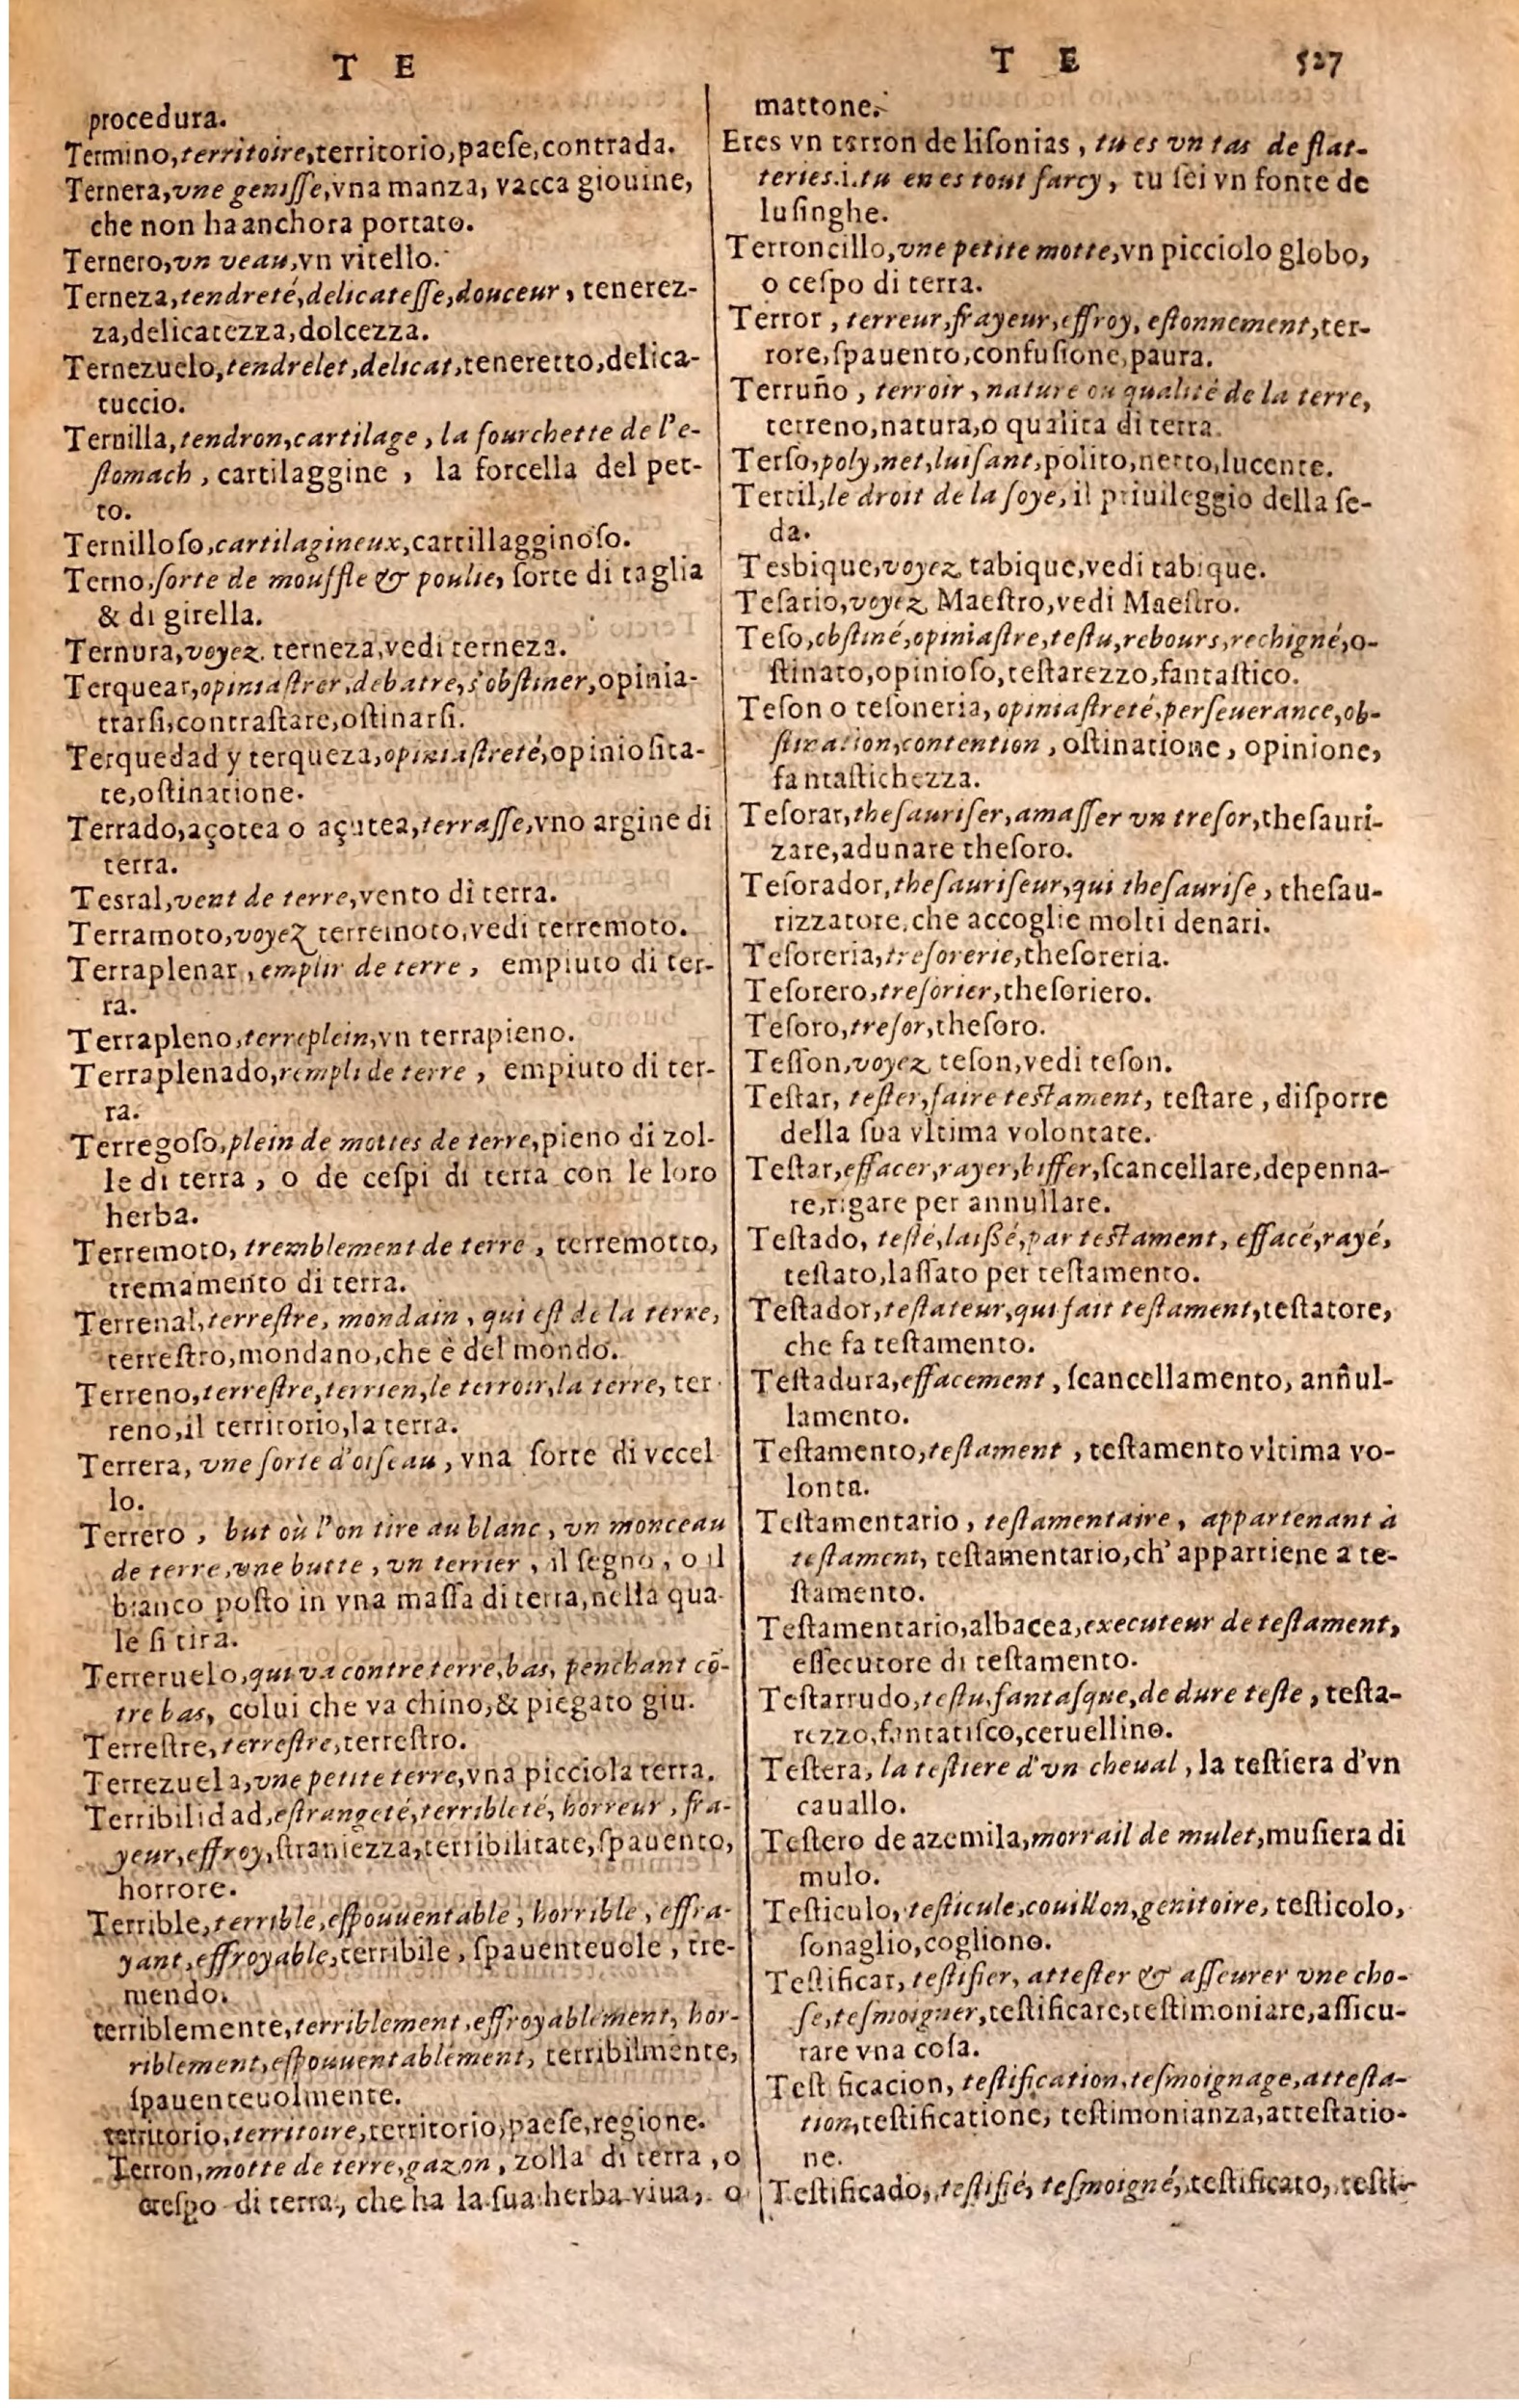 T E
procedura.
Termino, territoire, territorio, paese, contrada.
Ternera, vne genisse, vna manza, vacca giouine,
che non ha anchora portato.
Ternero, vn veau, vn vitello.
Terneza, tendreté, delicatesse, douceur, tenerez-
za, delicatezza, dolcezza.
Ternezuelo, tendrelet, delicat, teneretto, delica-
tuccio.
Ternilla, tendron, cartilage, la fourchette de l'e-
stomach, cartilaggine, la forcella del pet-
to.
Ternilloso, cartilagineux, cartillagginoso.
Terno, sorte de mouffle & poulie, sorte di taglia
& di girella.
Ternura, voyez terneza, vedi terneza.
Terquear, opiniastrer, debatre, s'obstiner, opinia-
trarsi, contrastare, ostinarsi.
Terquedad y terqueza, opiniastreté, opiniosita-
te, ostinatione.
Terrado, açotea o açutea, terrasse, vno argine di
terra.
Tesral, vent de terre, vento di terra.
Terramoto, voyez terremoto, vedi terremoto.
Terraplenar, emplir de terre, empiuto di ter-
ra.
Terrapleno, terreplein, vn terrapieno.
Terraplenado, rempli de terre, empiuto di ter-
ra.
Terregoso, plein de mottes de terre, pieno di zol-
le di terra, o de cespi di terra con le loro
herba.
Terremoto, tremblement de terre, terremotto,
tremamento di terra.
Terrenal, terrestre, mondain, qui est de la terre,
terrestro, mondano, che è del mondo.
Terreno, terrestre, terrien, le terroir, la terre, ter
reno, il territorio, la terra.
Terrera, vne sorte d'oiseau, vna sorte di vccel
lo.
Terrero, but où l'on tire au blanc, vn monceau
de terre, vne butte, vn terrier, il segno, o il
bianco posto in vna massa di terra, nella qua-
le si tira.
Terreruelo, qui va contre terre, bas, penchant cõ-
tre bas, colui che va chino, & piegato giu.
Terrestre, terrestre, terrestro.
Terrezuela, vne petite terre, vna picciola terra.
Terribilidad, estrangeté, terribleté, horreur, fra-
yeur, effroy, straniezza, terribilitate, spauento,
horrore.
Terrible, terrible, espouuentable, horrible, effra-
yant, effroyable, terribile, spauenteuole, tre-
mendo.
terriblemente, terriblement, effroyablement, hor-
riblement, espouuentablement, terribilmente,
spauenteuolmente.
territorio, territoire, territorio, paese, regione.
Terron, motte de terre, gazon, zolla di terra, o
cespo di terra, che ha la sua herba viua, o
T E 527
mattone.
Eres vn terron de lisonias, tu es vn tas de flat-
teries.i.tu en es tout farcy, tu sei vn fonte de
lusinghe.
Terroncillo, vne petite motte, vn picciolo globo,
o cespo di terra.
Terror, terreur, frayeur, effroy, estonnement, ter-
rore, spauento, confusione, paura.
Terruño, terroir, nature ou qualité de la terre,
terreno, natura, o qualita di terra.
Terso, poly, net, luisant, polito, netto, lucente.
Tertil, le droit de la soye, il priuileggio della se-
da.
Tesbique, voyez tabique, vedi tabique.
Tesario, voyez Maestro, vedi Maestro.
Teso, obstiné, opiniastre, testu, rebours, rechigné, o-
stinato, opinioso, testarezzo, fantastico.
Teson o tesoneria, opiniastreté, perseuerance, ob-
stination, contention, ostinatione, opinione,
fantastichezza.
Tesorar, thesauriser, amasser vn tresor, thesauri-
zare, adunare thesoro.
Tesorador, thesauriseur, qui thesaurise, thesau-
rizzatore, che accoglie molti denari.
Tesoreria, tresorerie, thesoreria.
Tesorero, tresorier, thesoriero.
Tesoro, tresor, thesoro.
Tesson, voyez teson, vedi teson.
Testar, tester, faire testament, testare, disporre
della sua vltima volontate.
Testar, effacer, rayer, biffer, scancellare, depenna-
re, rigare per annullare.
Testado, testé, laissé, par testament, effacé, rayé,
testato, lassato per testamento.
Testador, testateur, qui fait testament, testatore,
che fa testamento.
Testadura, effacement, scancellamento, anñul-
lamento.
Testamento, testament, testamento vltima vo-
lonta.
Testamentario, testamentaire, appartenant à
testament, testamentario, ch' appartiene a te-
stamento.
Testamentario, albacea, executeur de testament,
essecutore di testamento.
Testarrudo, testu, fantasque, de dure teste, testa-
rezzo, fantatisco, ceruellino.
Testera, la testiere d'vn cheual, la testiera d'vn
cauallo.
Testero de azemila, morrail de mulet, musiera di
mulo.
Testiculo, testicule, couillon, genitoire, testicolo,
sonaglio, coglione.
Testificar, testifier, attester & asseurer vne cho-
se, tesmoigner, testificare, testimoniare, assicu-
rare vna cosa.
Test ficacion, testification, tesmoignage, attesta-
tion, testificatione, testimonianza, attestatio-
ne.
Testificado, testifié, tesmoigné, testificato, testi-